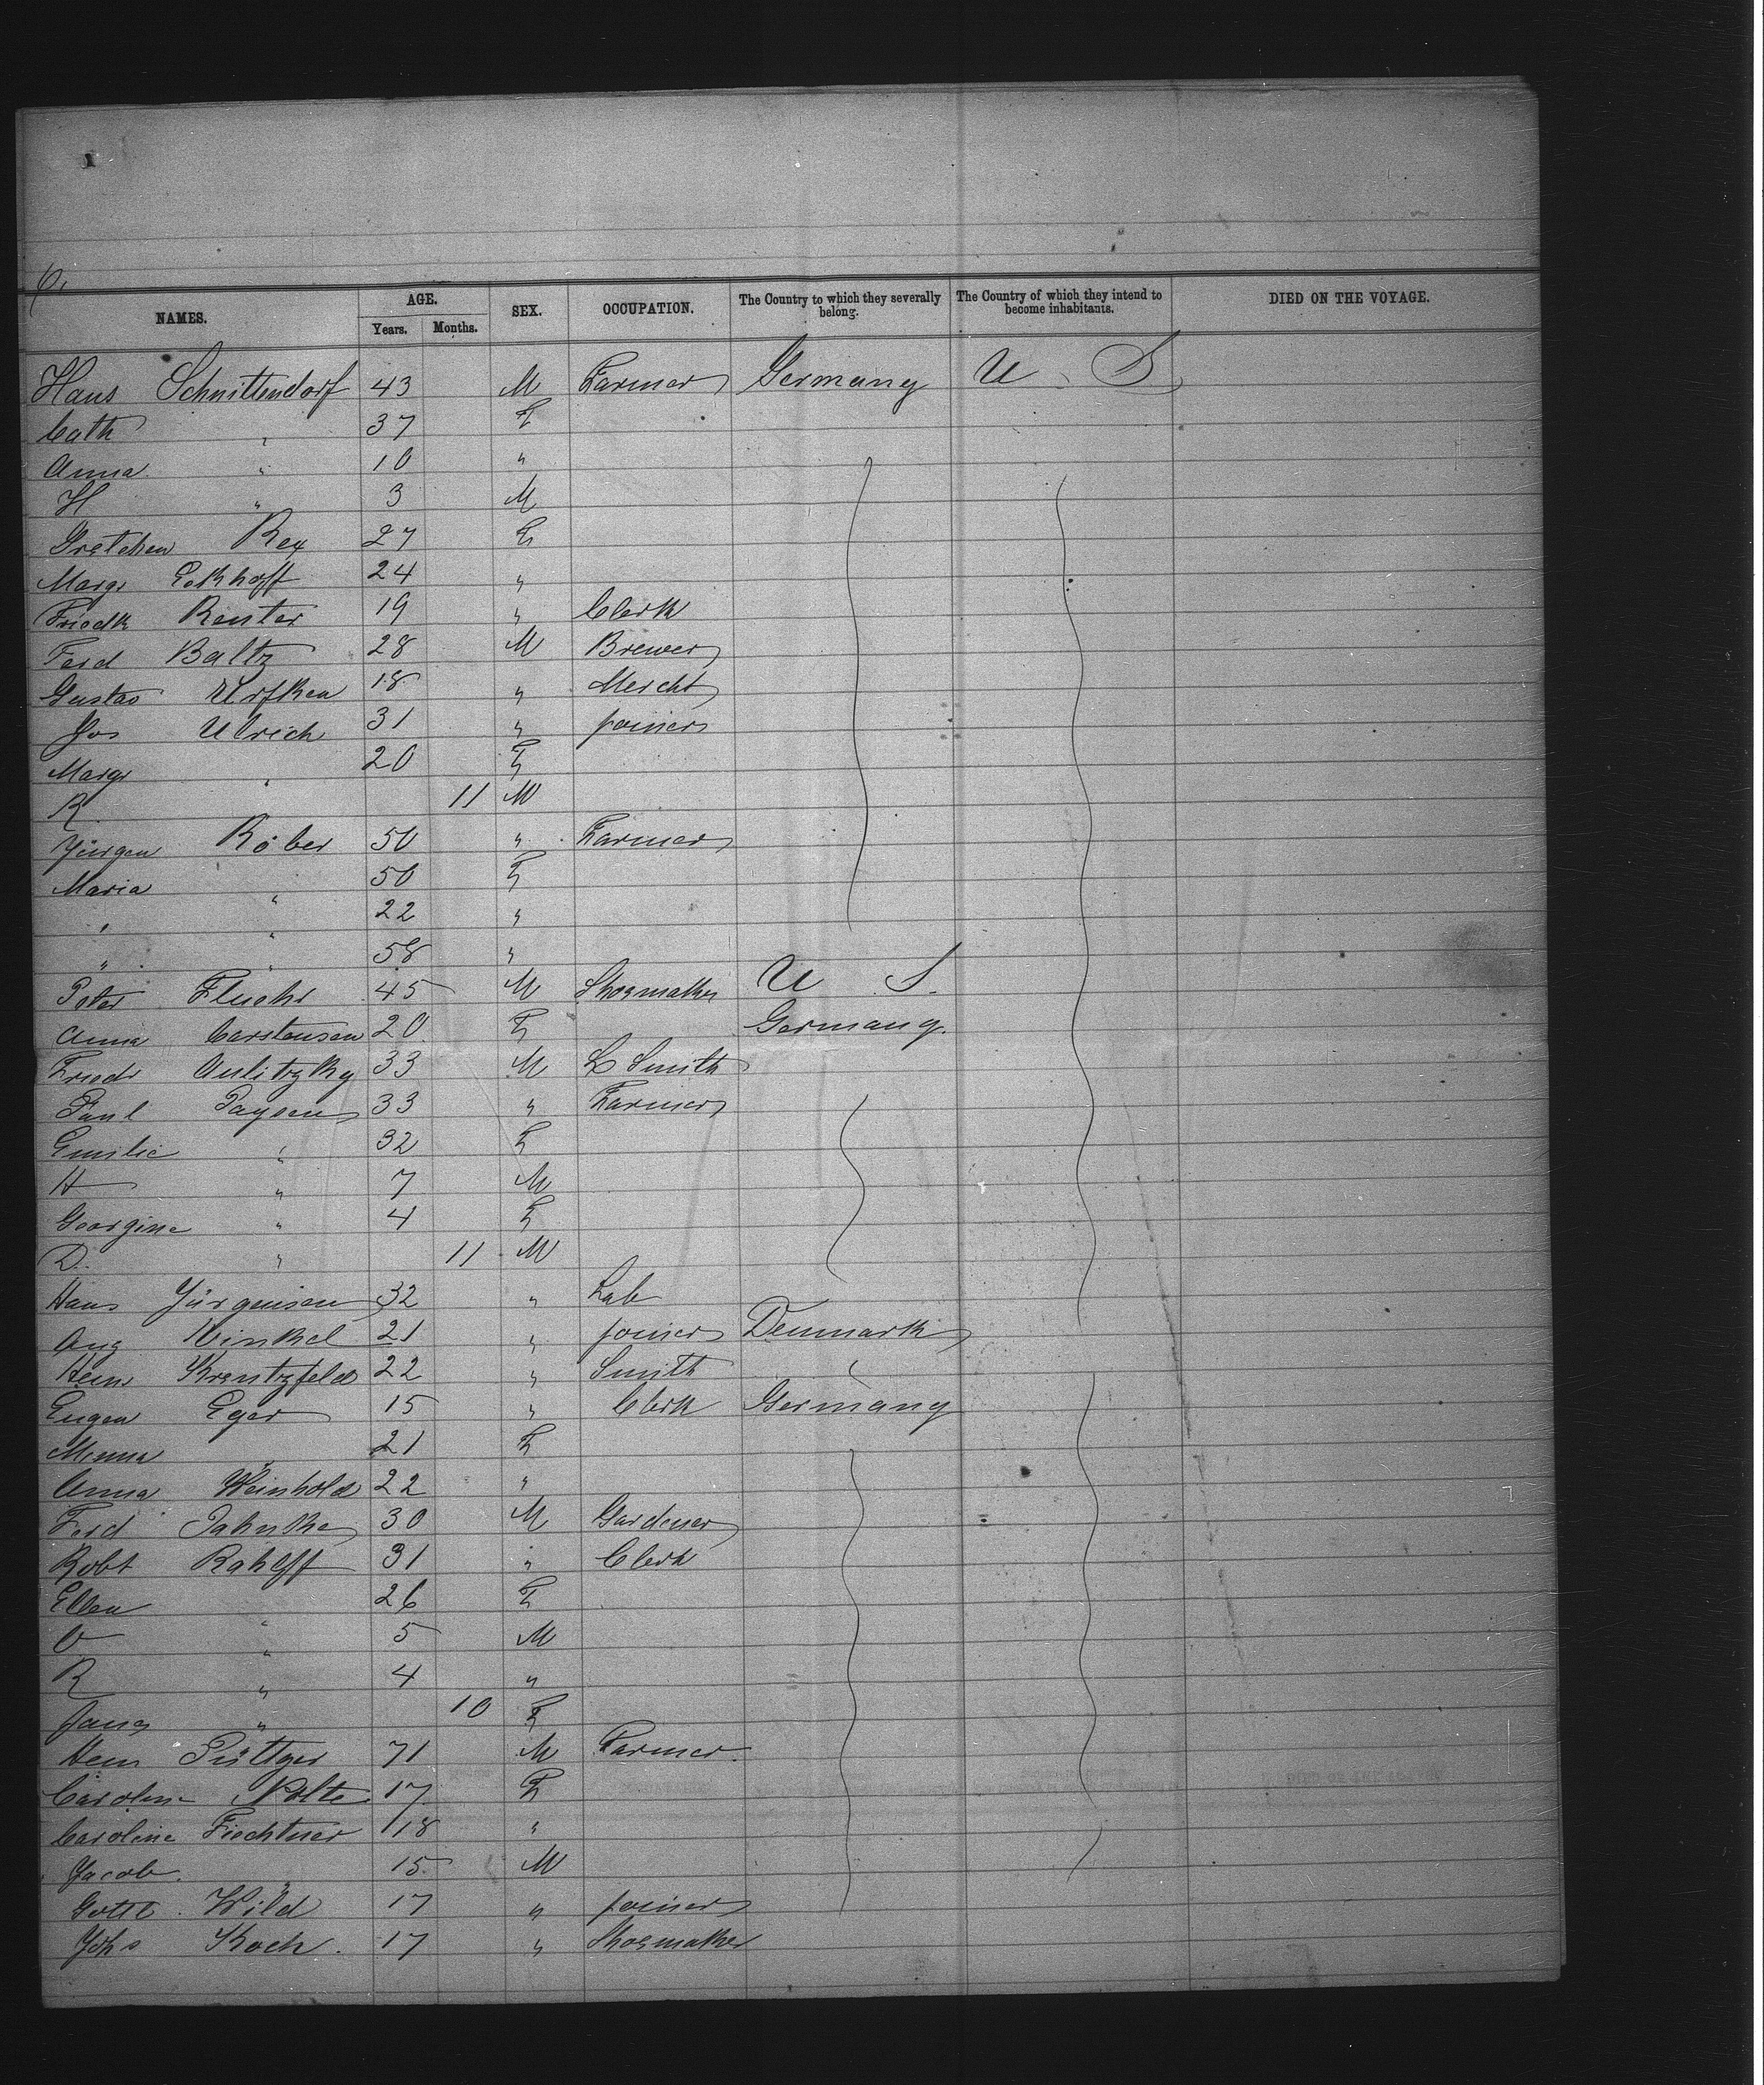 6.
NAMES. AGE. Years. Months. SEX. OCCUPATION. The Country to which they severally belong. The Country of which they intend to become inhabitants. DIED ON THE VOYAGE.
Hans Schnittendorf 43 M Farmer Germany U. S.
Cath " 37 F
Anna " 10 "
H " 3 M
Gretchen Rex 27 F
Margr Eckhoff 24 "
Friedk Reuter 19 " Clerk
Ferd Baltz 28 M Brewer
Gustav 18 " Mercht
Jos Ulrich 31 " joiner
Margr " 20 F
R. 11 M
Jürgen Röber 50 " Farmer
Maria " 50 F
" " 22 "
" " 58 "
Peter Fluehr 45 M Shoemaker U S.
Anna Carstensen 20 F Germany.
Friedr Aulitzky 33 M L Smith
Paul Paysen 33 " Farmer
Emilie " 32 F
H " 7 M
Georgine " 4 F
D. " 11 M
Hans Jürgensen 32 " Lab
Aug Winkel 21 " joiner Denmark
Heinr Krentzfeld 22 " Smith "
Eugen Eger 15 " Clerk Germany
Minna " 21 F
Anna Weinhold 22 "
Ferd Jahnke 30 M Gardener
Robt Rahlff 31 " Clerk
Ellen " 26 F
O " 5 M
R " 4 "
Jane " 10 F
Hein Püttger 71 M Farmer.
Caroline Nolte 17 F
Caroline Fiechtner 18 "
Jacob. " 15 M
Gottl. Wild 17 " joiner
Johs Koch. 17 " Shoemaker